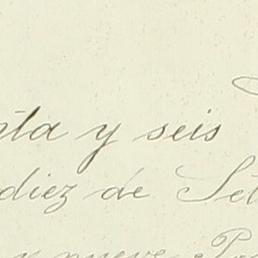 nta y seis
diez de Set
y nueve